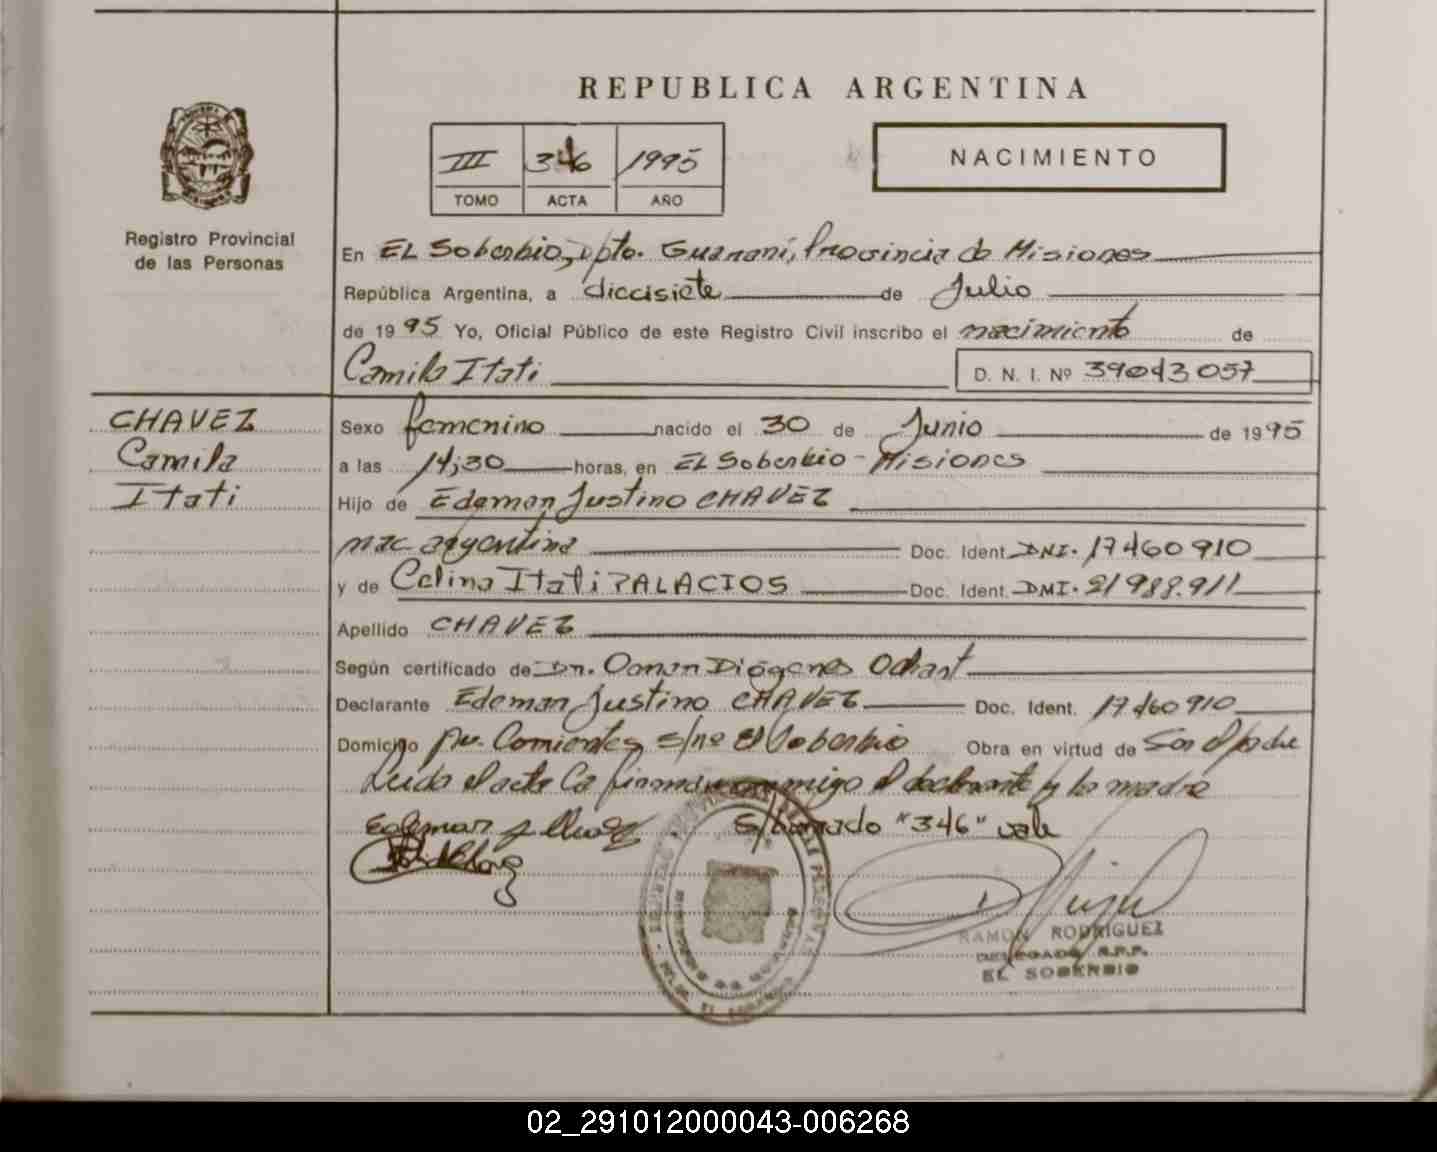 REPUBLICA ARGENTINA
III 346 1995
TOMO ACTA AÑO
NACIMIENTO
Registro Provincial
de las Personas
En EL Soberbio, Dpto. Guaraní, Provincia de Misiones
República Argentina, a diecisiete de Julio
de 1995 Yo, Oficial Público de este Registro Civil inscribo el nacimiento de
Camila Itati D. N. I. Nº 39043057
CHAVEZ
Camila
Itati
Sexo femenino nacido el 30 de Junio de 1995
a las 14,30 horas, en EL Soberbio - Misiones
Hijo de Edeman Justino CHAVEZ
nac argentina Doc. Ident. DNI. 17460910
y de Celina Itati PALACIOS Doc. Ident. DNI. 21988.911
Apellido CHAVEZ
Según certificado de Dr. Oman Diógenes
Declarante Edeman Justino CHAVEZ Doc. Ident. 17460910
Domicilio Av. Corrientes s/nº El Soberbio Obra en virtud de Ser el padre
Leida el acta la firman conmigo el declarante y la madre
S/borrado "346" vale
RAMON RODRIGUEZ
DELEGADO R.P.P.
EL SOBERBIO
02_291012000043-006268